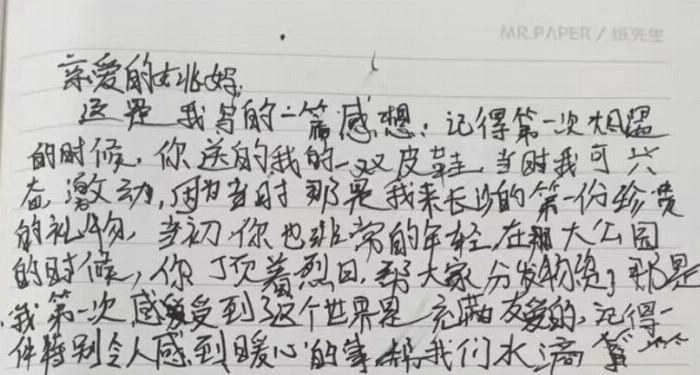 MR.PAPER / 纸先生
亲爱的妣妈:
这是我写的一篇感想:记得第一次相遇
的时候,你送的我的一双皮鞋,当时我可兴
奋,激动,因为当时那是我来长沙的第一份珍贵
的礼物,当初你也非常的年轻,在那大公园
的时候,你顶着烈日,帮大家分发物资,那是
我第一次感受到了这个世界是充满友爱的,记得一
件特别令人感到暖心的事,帮我们水滴